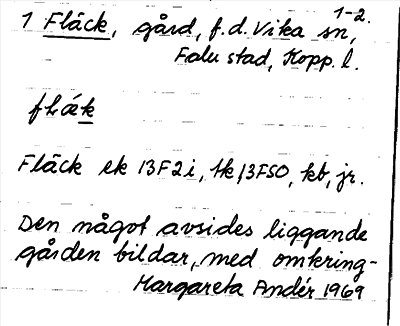 1-2.
1 Fläck, gård, f.d. Vika sn,
Falu stad, Kopp. l.
flæk
Fläck ek 13F2i, tk 13FSO, kb, jr.
Den något avsides liggande
gården bildar, med omkring-
Margareta Andér 1969